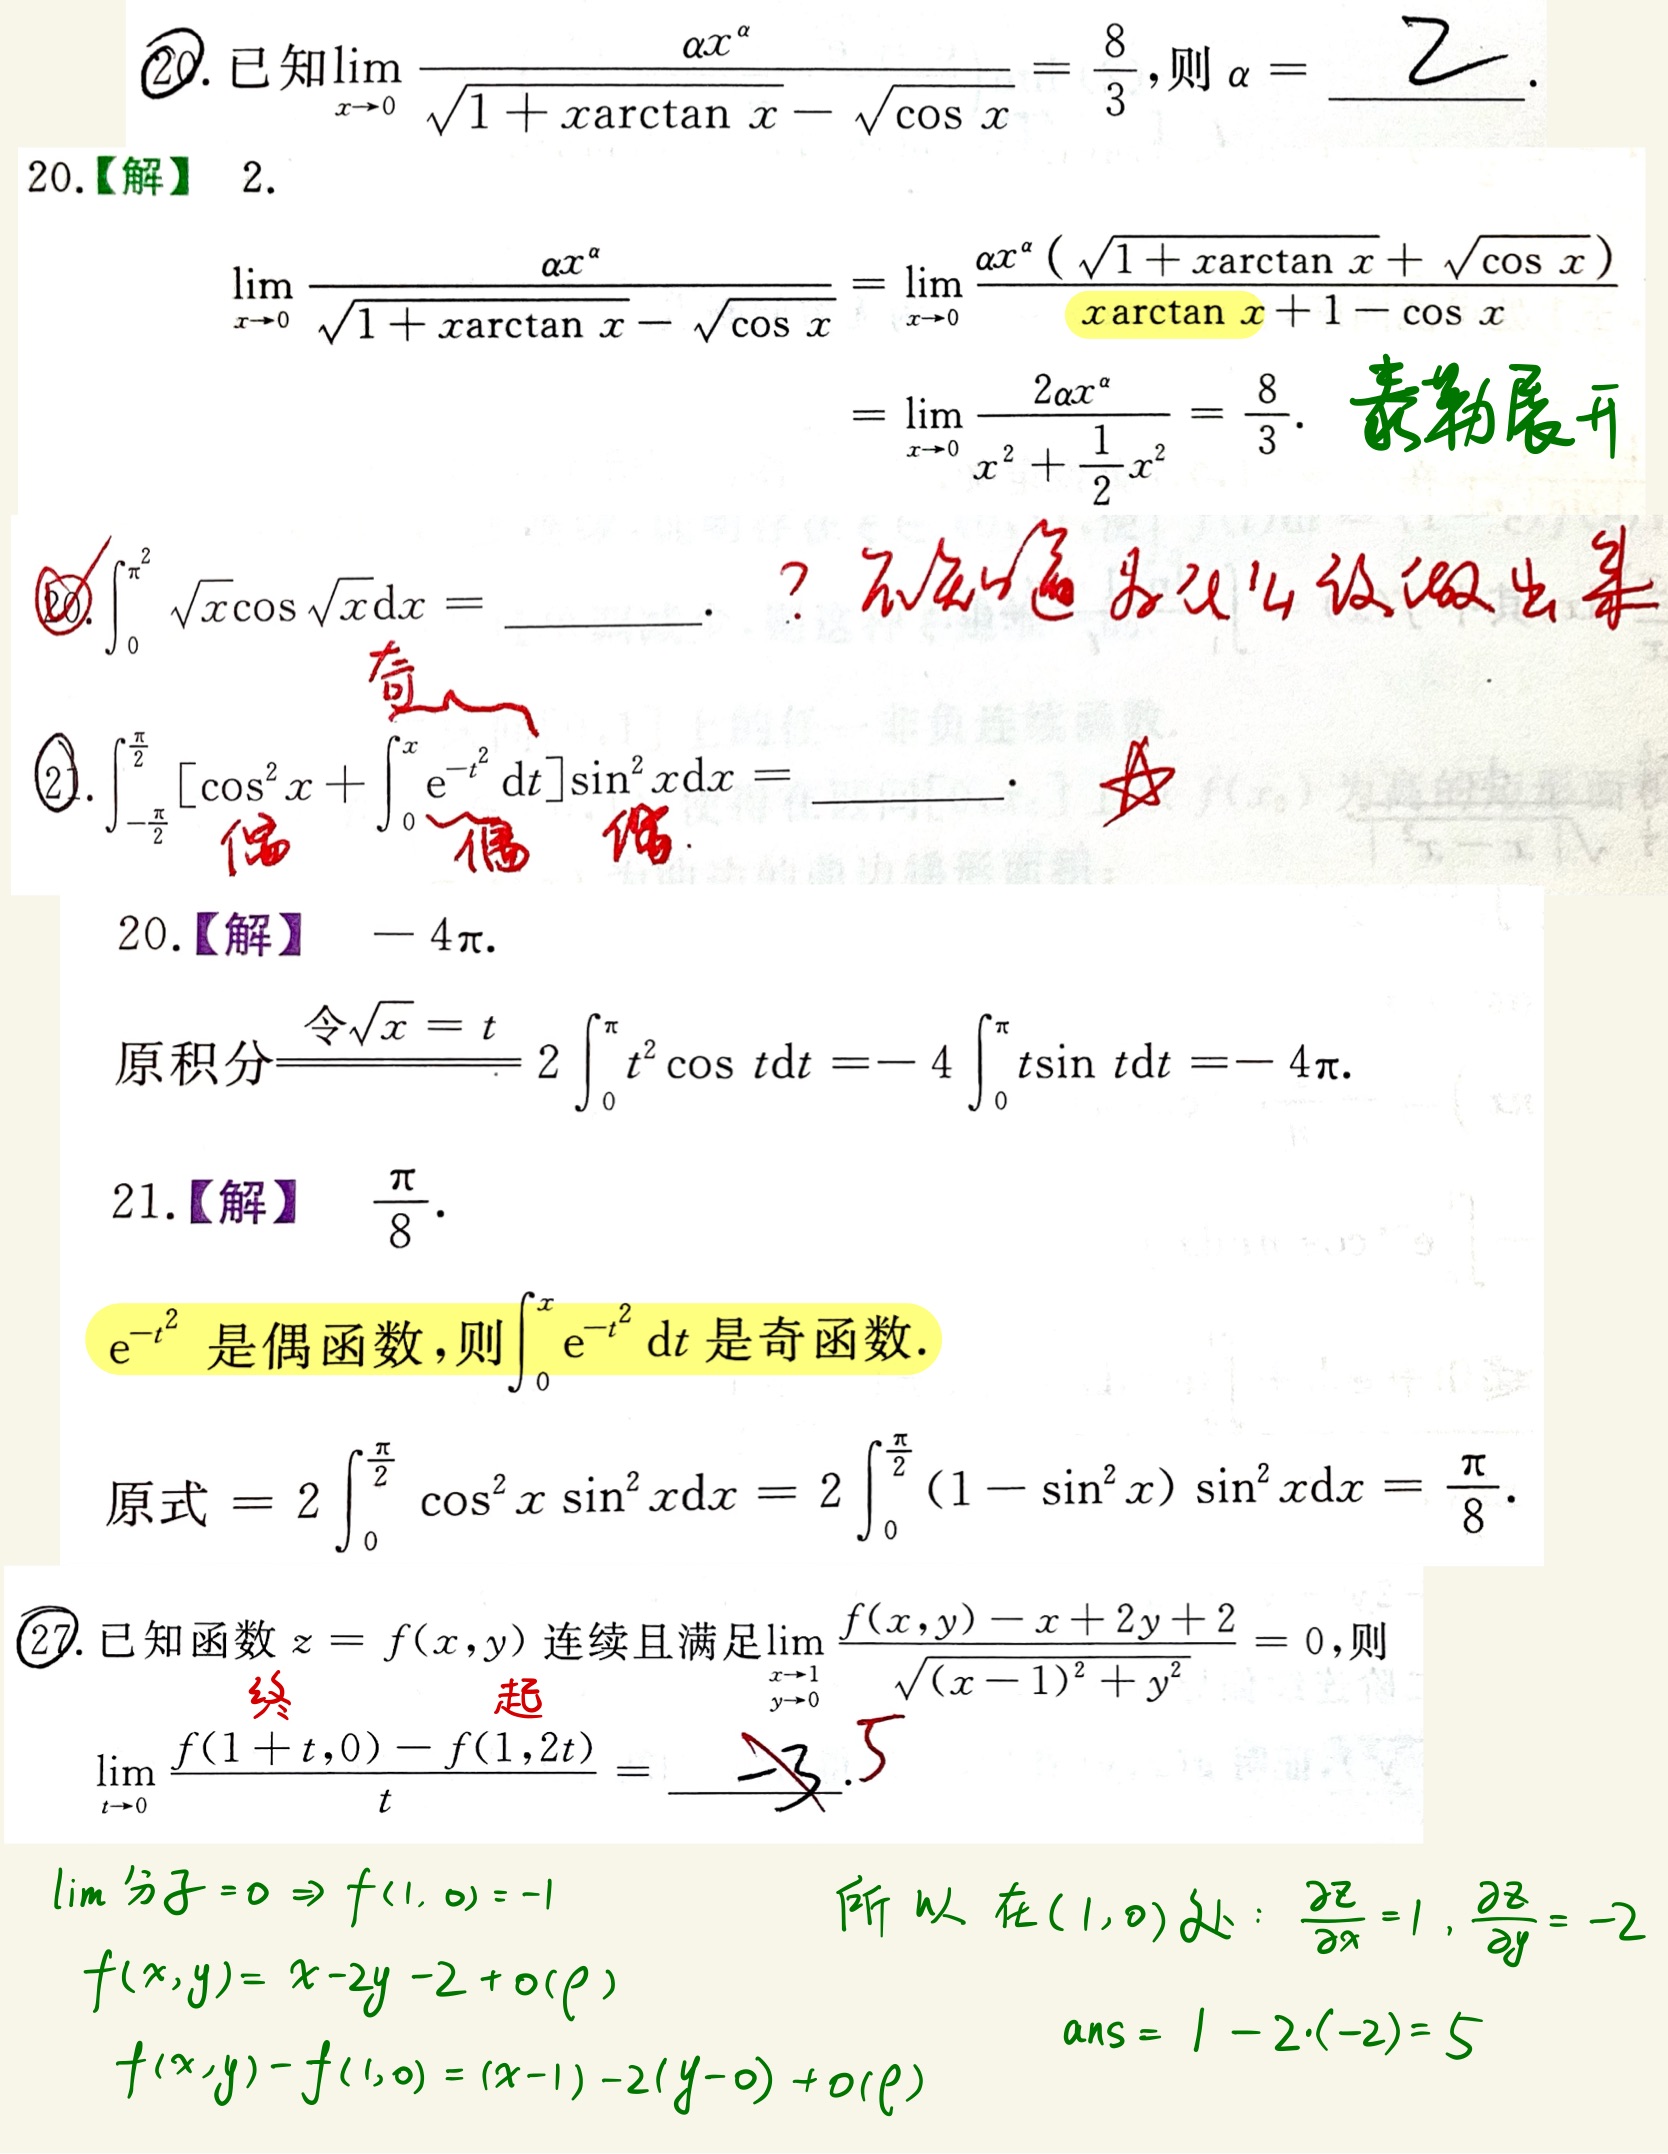 20. 已知 lim_{x→0} αx^α / (√(1+xarctan x) − √(cos x)) = 8/3, 则 α = 2.
20.【解】 2.
lim_{x→0} αx^α / (√(1+xarctan x) − √(cos x)) = lim_{x→0} αx^α(√(1+xarctan x) + √(cos x)) / (xarctan x + 1 − cos x)
= lim_{x→0} 2αx^α / (x² + (1/2)x²) = 8/3. 泰勒展开
20. ∫_0^{π²} √x cos √x dx = ______. ? 不知道为什么没做出来
奇
21. ∫_{−π/2}^{π/2} [cos² x + ∫_0^x e^{−t²} dt] sin² x dx = ______. ☆
偶 偶 偶.
20.【解】 − 4π.
原积分 ==令√x = t== 2∫_0^π t² cos tdt = − 4∫_0^π tsin tdt = − 4π.
21.【解】 π/8.
e^{−t²} 是偶函数, 则∫_0^x e^{−t²} dt 是奇函数.
原式 = 2∫_0^{π/2} cos² x sin² xdx = 2∫_0^{π/2} (1 − sin² x) sin² xdx = π/8.
27. 已知函数 z = f(x,y) 连续且满足 lim_{x→1, y→0} (f(x,y) − x + 2y + 2) / √((x − 1)² + y²) = 0, 则
终 起
lim_{t→0} (f(1 + t,0) − f(1,2t)) / t = −3. 5
lim 分子 = 0 ⇒ f(1, 0) = −1
f(x,y) = x − 2y − 2 + o(ρ)
f(x,y) − f(1,0) = (x−1) − 2(y−0) + o(ρ)
所以 在(1,0)处: ∂z/∂x = 1, ∂z/∂y = −2
ans = 1 − 2·(−2) = 5